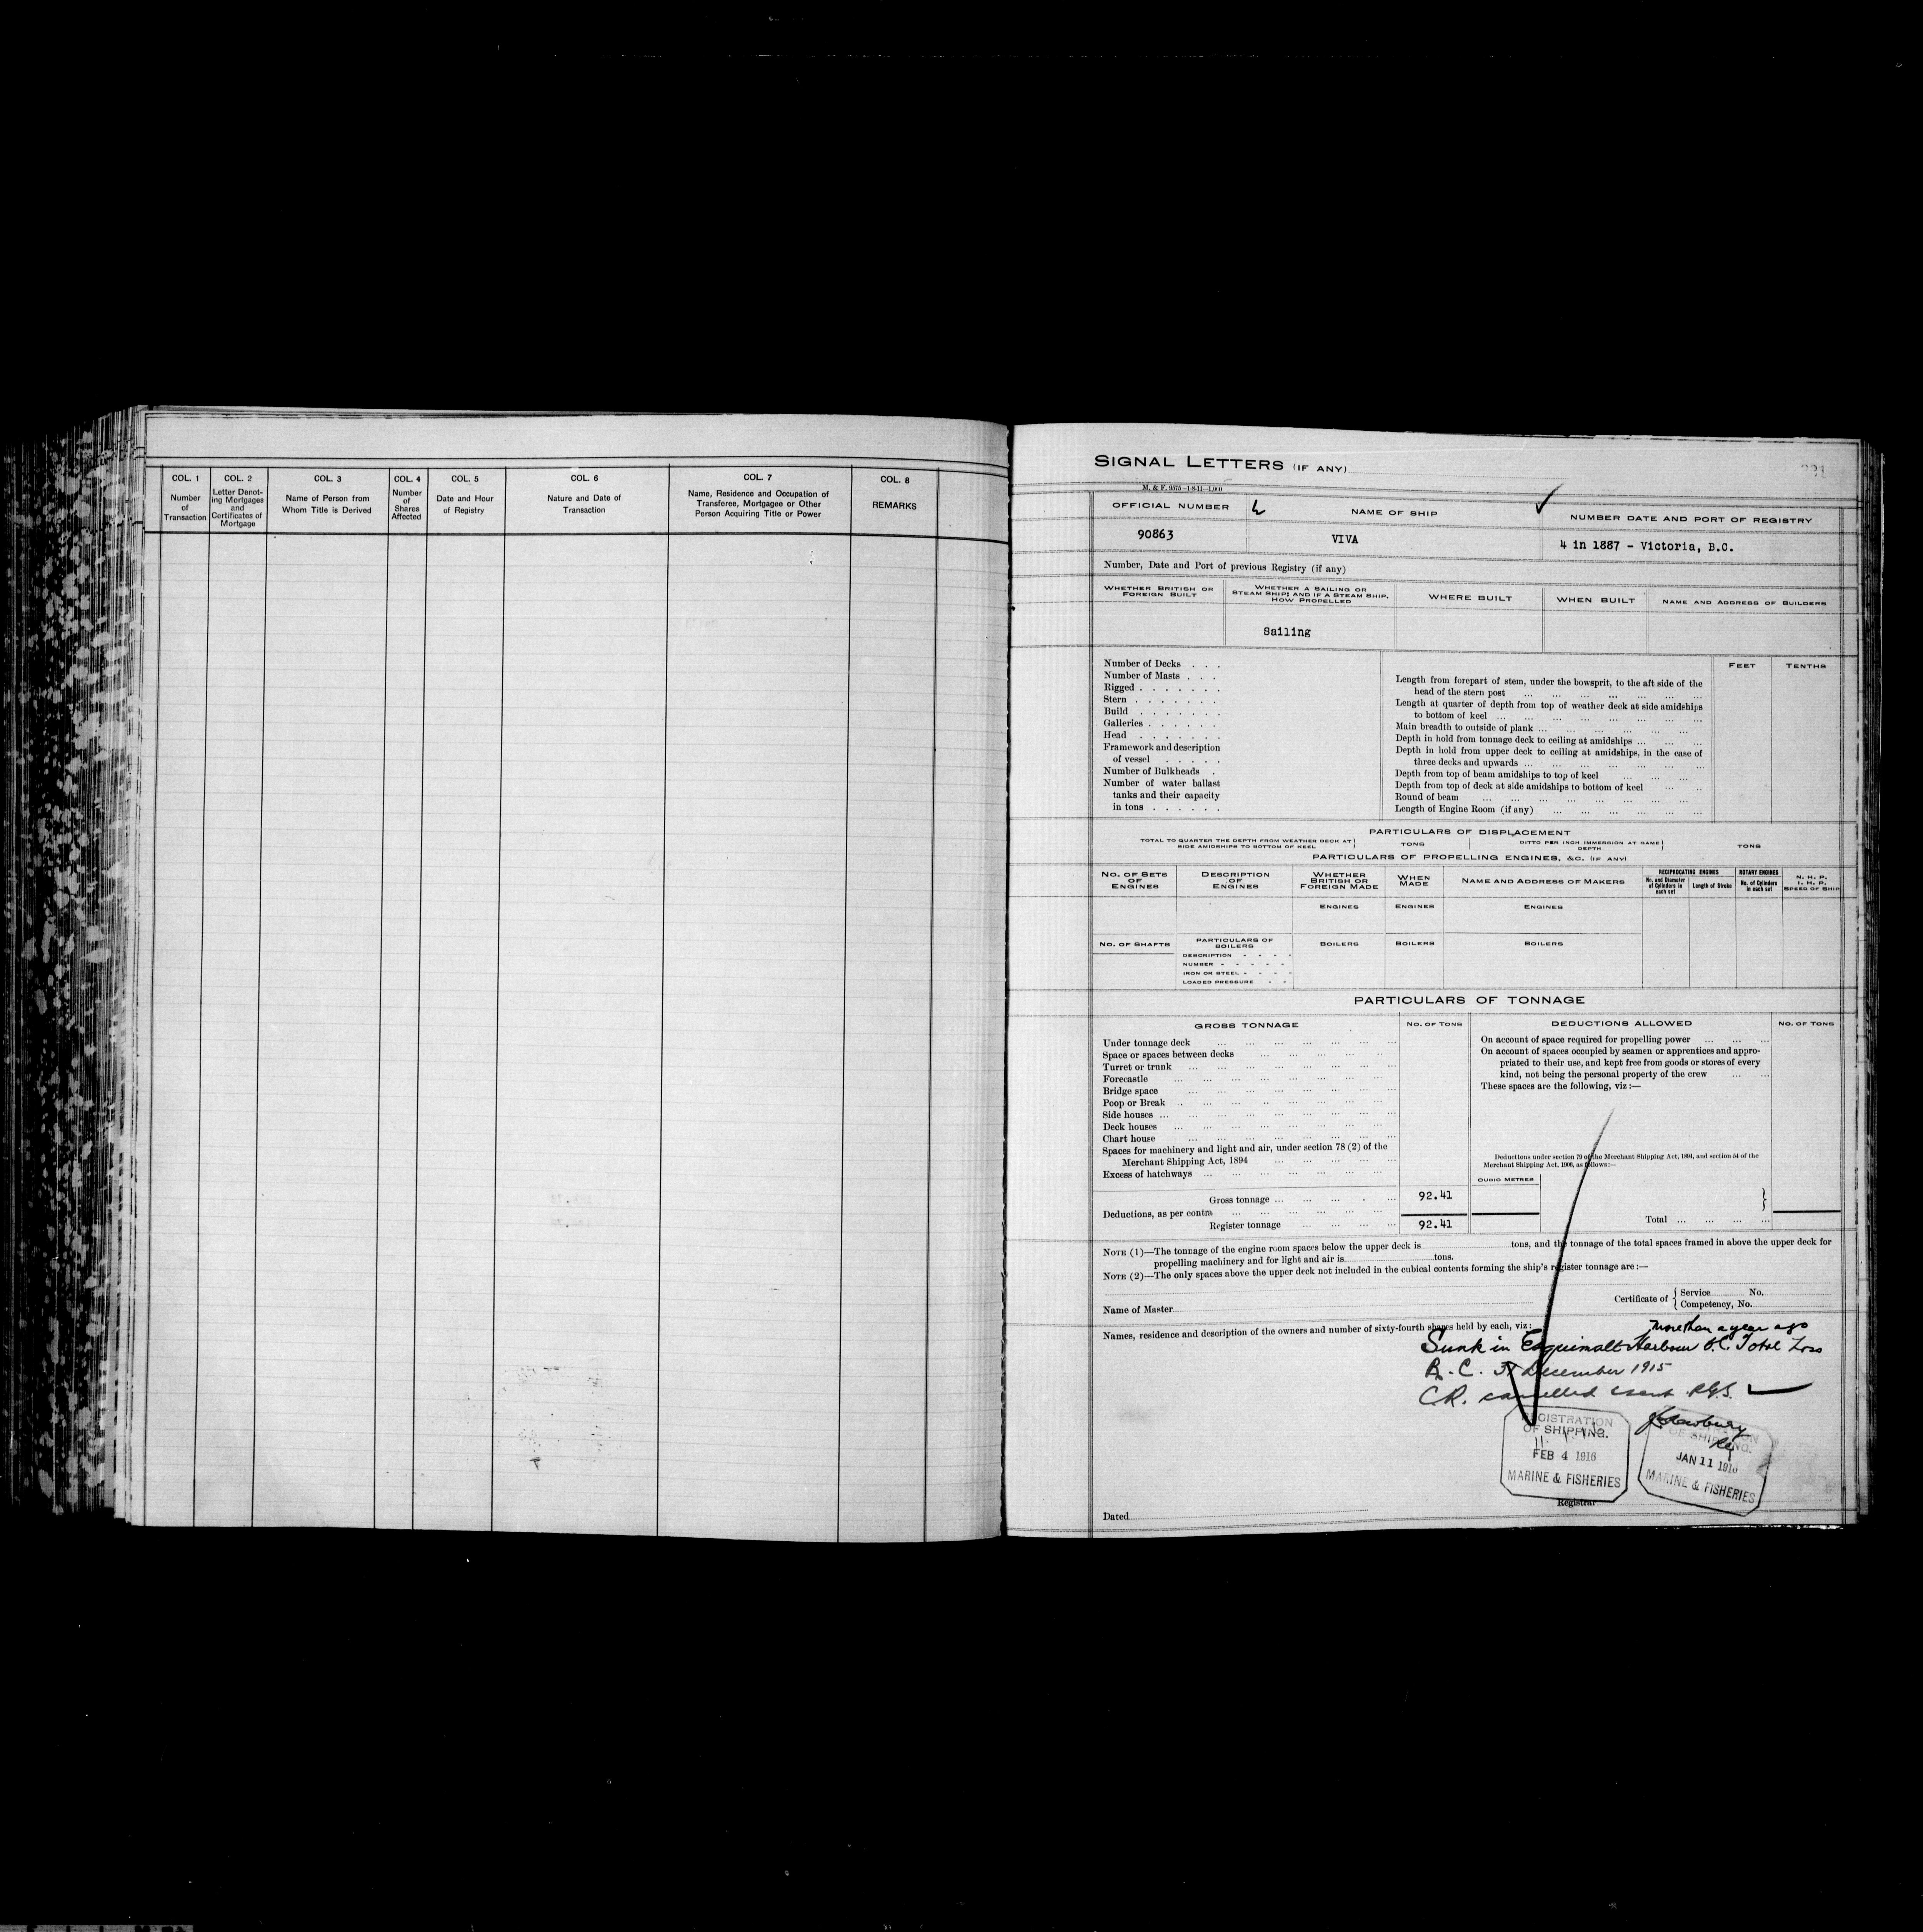 COL. 1
Number
of
Transaction
COL. 2
Letter Denot-
ing Mortgages
and
Certificates of
Mortgage
COL. 3
Name of Person from
Whom Title is Derived
COL. 4
Number
of
Shares
Affected
COL. 5
Date and Hour
of Registry
COL. 6
Nature and Date of
Transaction
COL. 7
Name, Residence and Occupation of
Transferee, Mortgagee or Other
Person Acquiring Title or Power
COL. 8
REMARKS
SIGNAL LETTERS (IF ANY)
M. & F. 9575—1-8-11—1,000
OFFICIAL NUMBER
NAME OF SHIP
NUMBER DATE AND PORT OF REGISTRY
90863
VIVA
4 in 1887 - Victoria, B.C.
Number, Date and Port of previous Registry (if any)
WHETHER BRITISH OR
FOREIGN BUILT
WHETHER A SAILING OR
STEAM SHIP; AND IF A STEAM SHIP,
HOW PROPELLED
WHERE BUILT
WHEN BUILT
NAME AND ADDRESS OF BUILDERS
Sailing
Number of Decks . . .
Number of Masts . . .
Rigged . . . . . . .
Stern . . . . . . .
Build . . . . . . .
Galleries . . . . . .
Head . . . . . . .
Framework and description
of vessel . . . . .
Number of Bulkheads .
Number of water ballast
tanks and their capacity
in tons . . . . . .
FEET
TENTHS
Length from forepart of stem, under the bowsprit, to the aft side of the
head of the stern post
Length at quarter of depth from top of weather deck at side amidships
to bottom of keel
Main breadth to outside of plank
Depth in hold from tonnage deck to ceiling at amidships
Depth in hold from upper deck to ceiling at amidships, in the case of
three decks and upwards
Depth from top of beam amidships to top of keel
Depth from top of deck at side amidships to bottom of keel
Round of beam
Length of Engine Room (if any)
PARTICULARS OF DISPLACEMENT
TOTAL TO QUARTER THE DEPTH FROM WEATHER DECK AT
SIDE AMIDSHIPS TO BOTTOM OF KEEL
TONS
DITTO PER INCH IMMERSION AT SAME
DEPTH
TONS
PARTICULARS OF PROPELLING ENGINES, &C. (IF ANY)
NO. OF SETS
OF
ENGINES
DESCRIPTION
OF
ENGINES
WHETHER
BRITISH OR
FOREIGN MADE
WHEN
MADE
NAME AND ADDRESS OF MAKERS
RECIPROCATING ENGINES
No. and Diameter
of Cylinders in
each set
Length of Stroke
ROTARY ENGINES
No. of Cylinders
in each set
N. H. P.
I. H. P.
SPEED OF SHIP
ENGINES
ENGINES
ENGINES
NO. OF SHAFTS
PARTICULARS OF
BOILERS
BOILERS
BOILERS
BOILERS
DESCRIPTION
NUMBER
IRON OR STEEL
LOADED PRESSURE
PARTICULARS OF TONNAGE
GROSS TONNAGE
NO. OF TONS
DEDUCTIONS ALLOWED
NO. OF TONS
Under tonnage deck
Space or spaces between decks
Turret or trunk
Forecastle
Bridge space
Poop or Break
Side houses
Deck houses
Chart house
Spaces for machinery and light and air, under section 78 (2) of the
Merchant Shipping Act, 1894
Excess of hatchways
Gross tonnage
92.41
Deductions, as per contra
Register tonnage
92.41
On account of space required for propelling power
On account of spaces occupied by seamen or apprentices and appro-
priated to their use, and kept free from goods or stores of every
kind, not being the personal property of the crew
These spaces are the following, viz :—
Deductions under section 79 of the Merchant Shipping Act, 1894, and section 54 of the
Merchant Shipping Act, 1906, as follows:—
CUBIC METRES
Total
NOTE (1)—The tonnage of the engine room spaces below the upper deck is tons, and the tonnage of the total spaces framed in above the upper deck for
propelling machinery and for light and air is tons.
NOTE (2)—The only spaces above the upper deck not included in the cubical contents forming the ship's register tonnage are :—
Name of Master
Certificate of
Service No.
Competency, No.
Names, residence and description of the owners and number of sixty-fourth shares held by each, viz:
more than a year ago
Sunk in Esquimalt Harbour B.C. Total Loss
R.C. 31 December 1915
C.R. cancelled & sent R.G.S.
REGISTRATION
OF SHIPPING.
FEB 4 1916
MARINE & FISHERIES
OF SHIPPING.
JAN 11 1916
MARINE & FISHERIES
Registrar
Dated